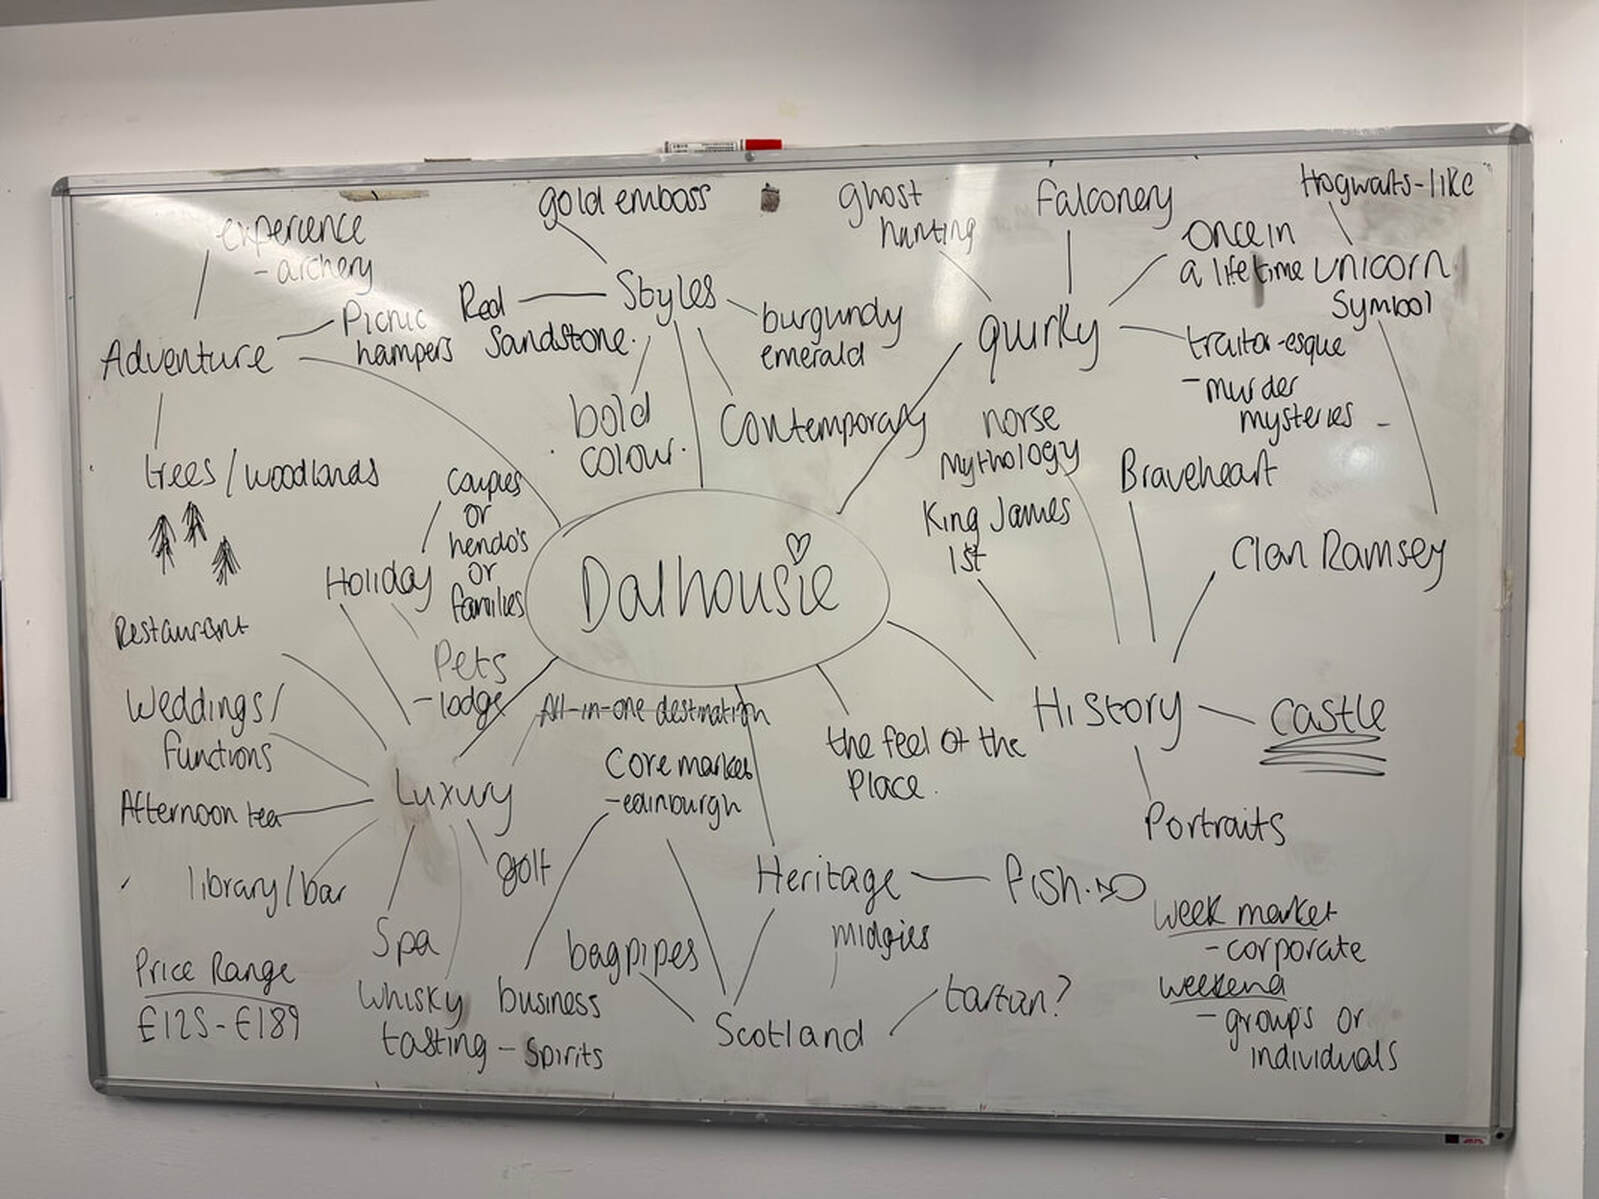 experience
- archery
Adventure
Picnic
hampers
trees / woodlands
gold emboss
Styles
Red
Sandstone.
burgundy
emerald
bold
colour.
Contemporary
ghost
hunting
falconery
quirky
Once in
a lifetime
traitor-esque
- murder
mysteries
Hogwarts-like
unicorn
Symbol
Clan Ramsey
norse
Mythology
Braveheart
King James
1st
Dalhousie
History
castle
Portraits
the feel of the
Place.
Couples
or
hendo's
or
families
Holiday
Pets
- lodge
All-in-one destination
Restaurant
Weddings/
functions
Afternoon tea
library/bar
Luxury
golf
Spa
Whisky
tasting - Spirits
Core market
- edinburgh
business
Heritage
fish.
midgies
bagpipes
Scotland
tartan?
Price Range
£125-£189
Week market
- corporate
weekend
- groups or
individuals